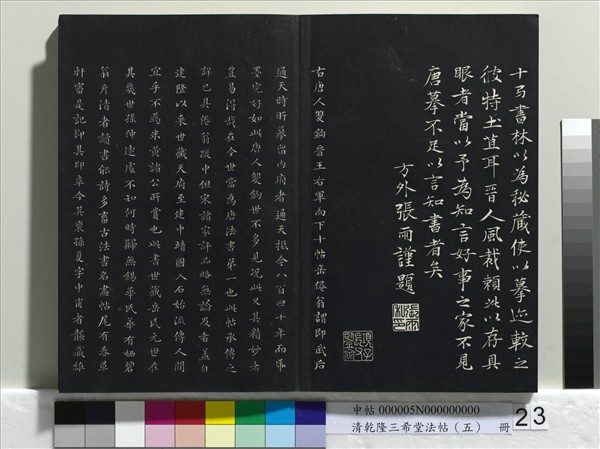 十号書林以為秘蔵使以摹迹較之
彼特土苴耳晉人風裁賴此以存具
眼者當以予為知言好事之家不見
唐摹不足以言知書者矣
方外張雨謹題
右唐人雙鉤晉王右軍而下十帖岳倦翁謂即武后
通天時所摹留內府者通天抵今八百四十年而帋
墨完好如此唐人雙鉤世不多見況此又其精妙者
豈易得哉在今世當為唐法書第一也此帖承傳之
詳已具倦翁跋中但宋諸家評品略無論及者蓋自
建隆以來世藏天府至建中靖國入石始流傳人間
宜乎不為米黃諸公所賞也此書世藏岳氏元世在
其裔孫仲遠處不知何時歸無錫華氏華有栖碧
翁彥清者讀書能詩多畜古法書名畫帖尾有春草
軒審定記即其印章今其裔孫夏字中甫者襲藏惟
中帖 000005N000000000
清乾隆三希堂法帖(五) 冊
23